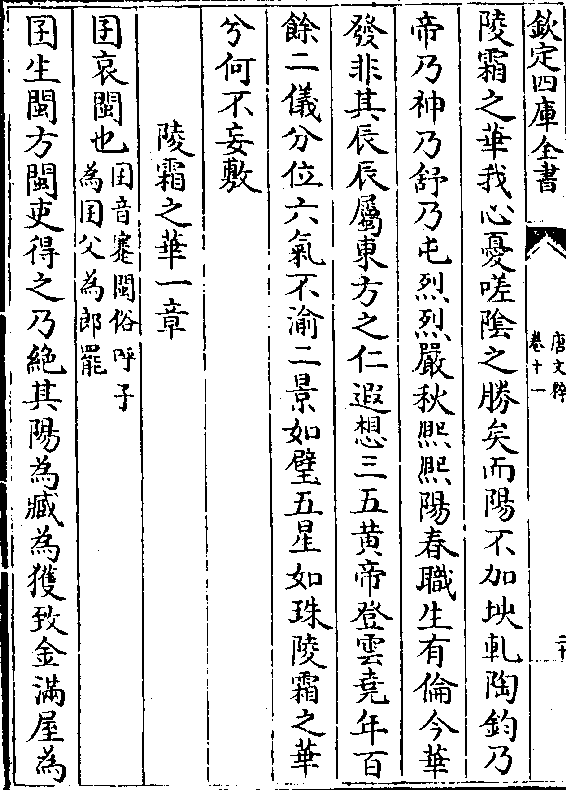 欽定四庫全書
唐文粹
卷十一
陵霜之華我心憂嗟隂之勝矣而陽不加坱軋陶鈞乃
帝乃神乃舒乃屯烈烈嚴秋熈熈陽春職生有倫今華
發非其辰辰屬東方之仁遐想三五黄帝登雲堯年百
餘二儀分位六氣不渝二景如璧五星如珠陵霜之華
兮何不妄敷
陵霜之華一章
囝哀閩也囝音蹇閩俗呼子
為囝父為郎罷
囝生閩方閩吏得之乃絶其陽為臧為獲致金滿屋為